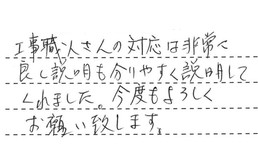 工事職人さんの対応は非常に
良し説明も分りやすく説明して
くれました。今度もよろしく
お願い致します。